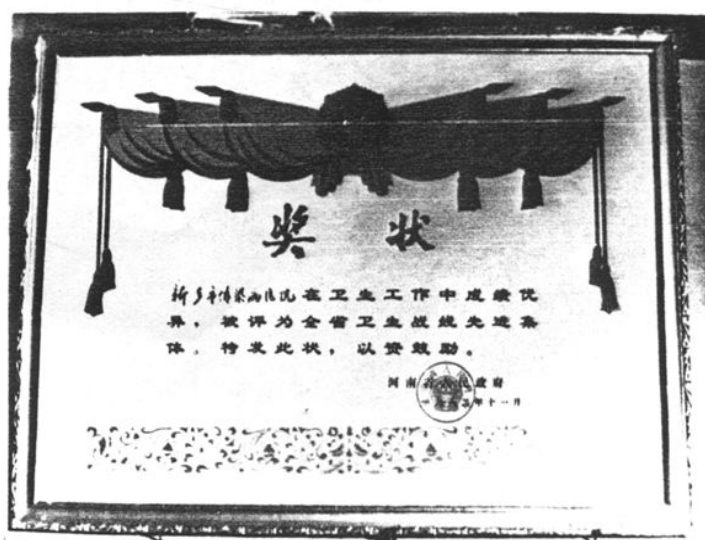 奖状
新乡市传染病医院在卫生工作中成绩优
异，被评为全省卫生战线先进集
体。特发此状，以资鼓励。
河南省人民政府
年十一月